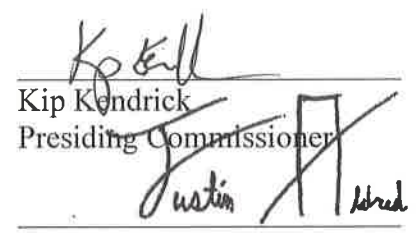 Kip Kendrick
Presiding Commissioner
Justin